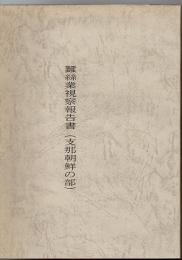 蠶絲業視察報告書(支那朝鮮の部)